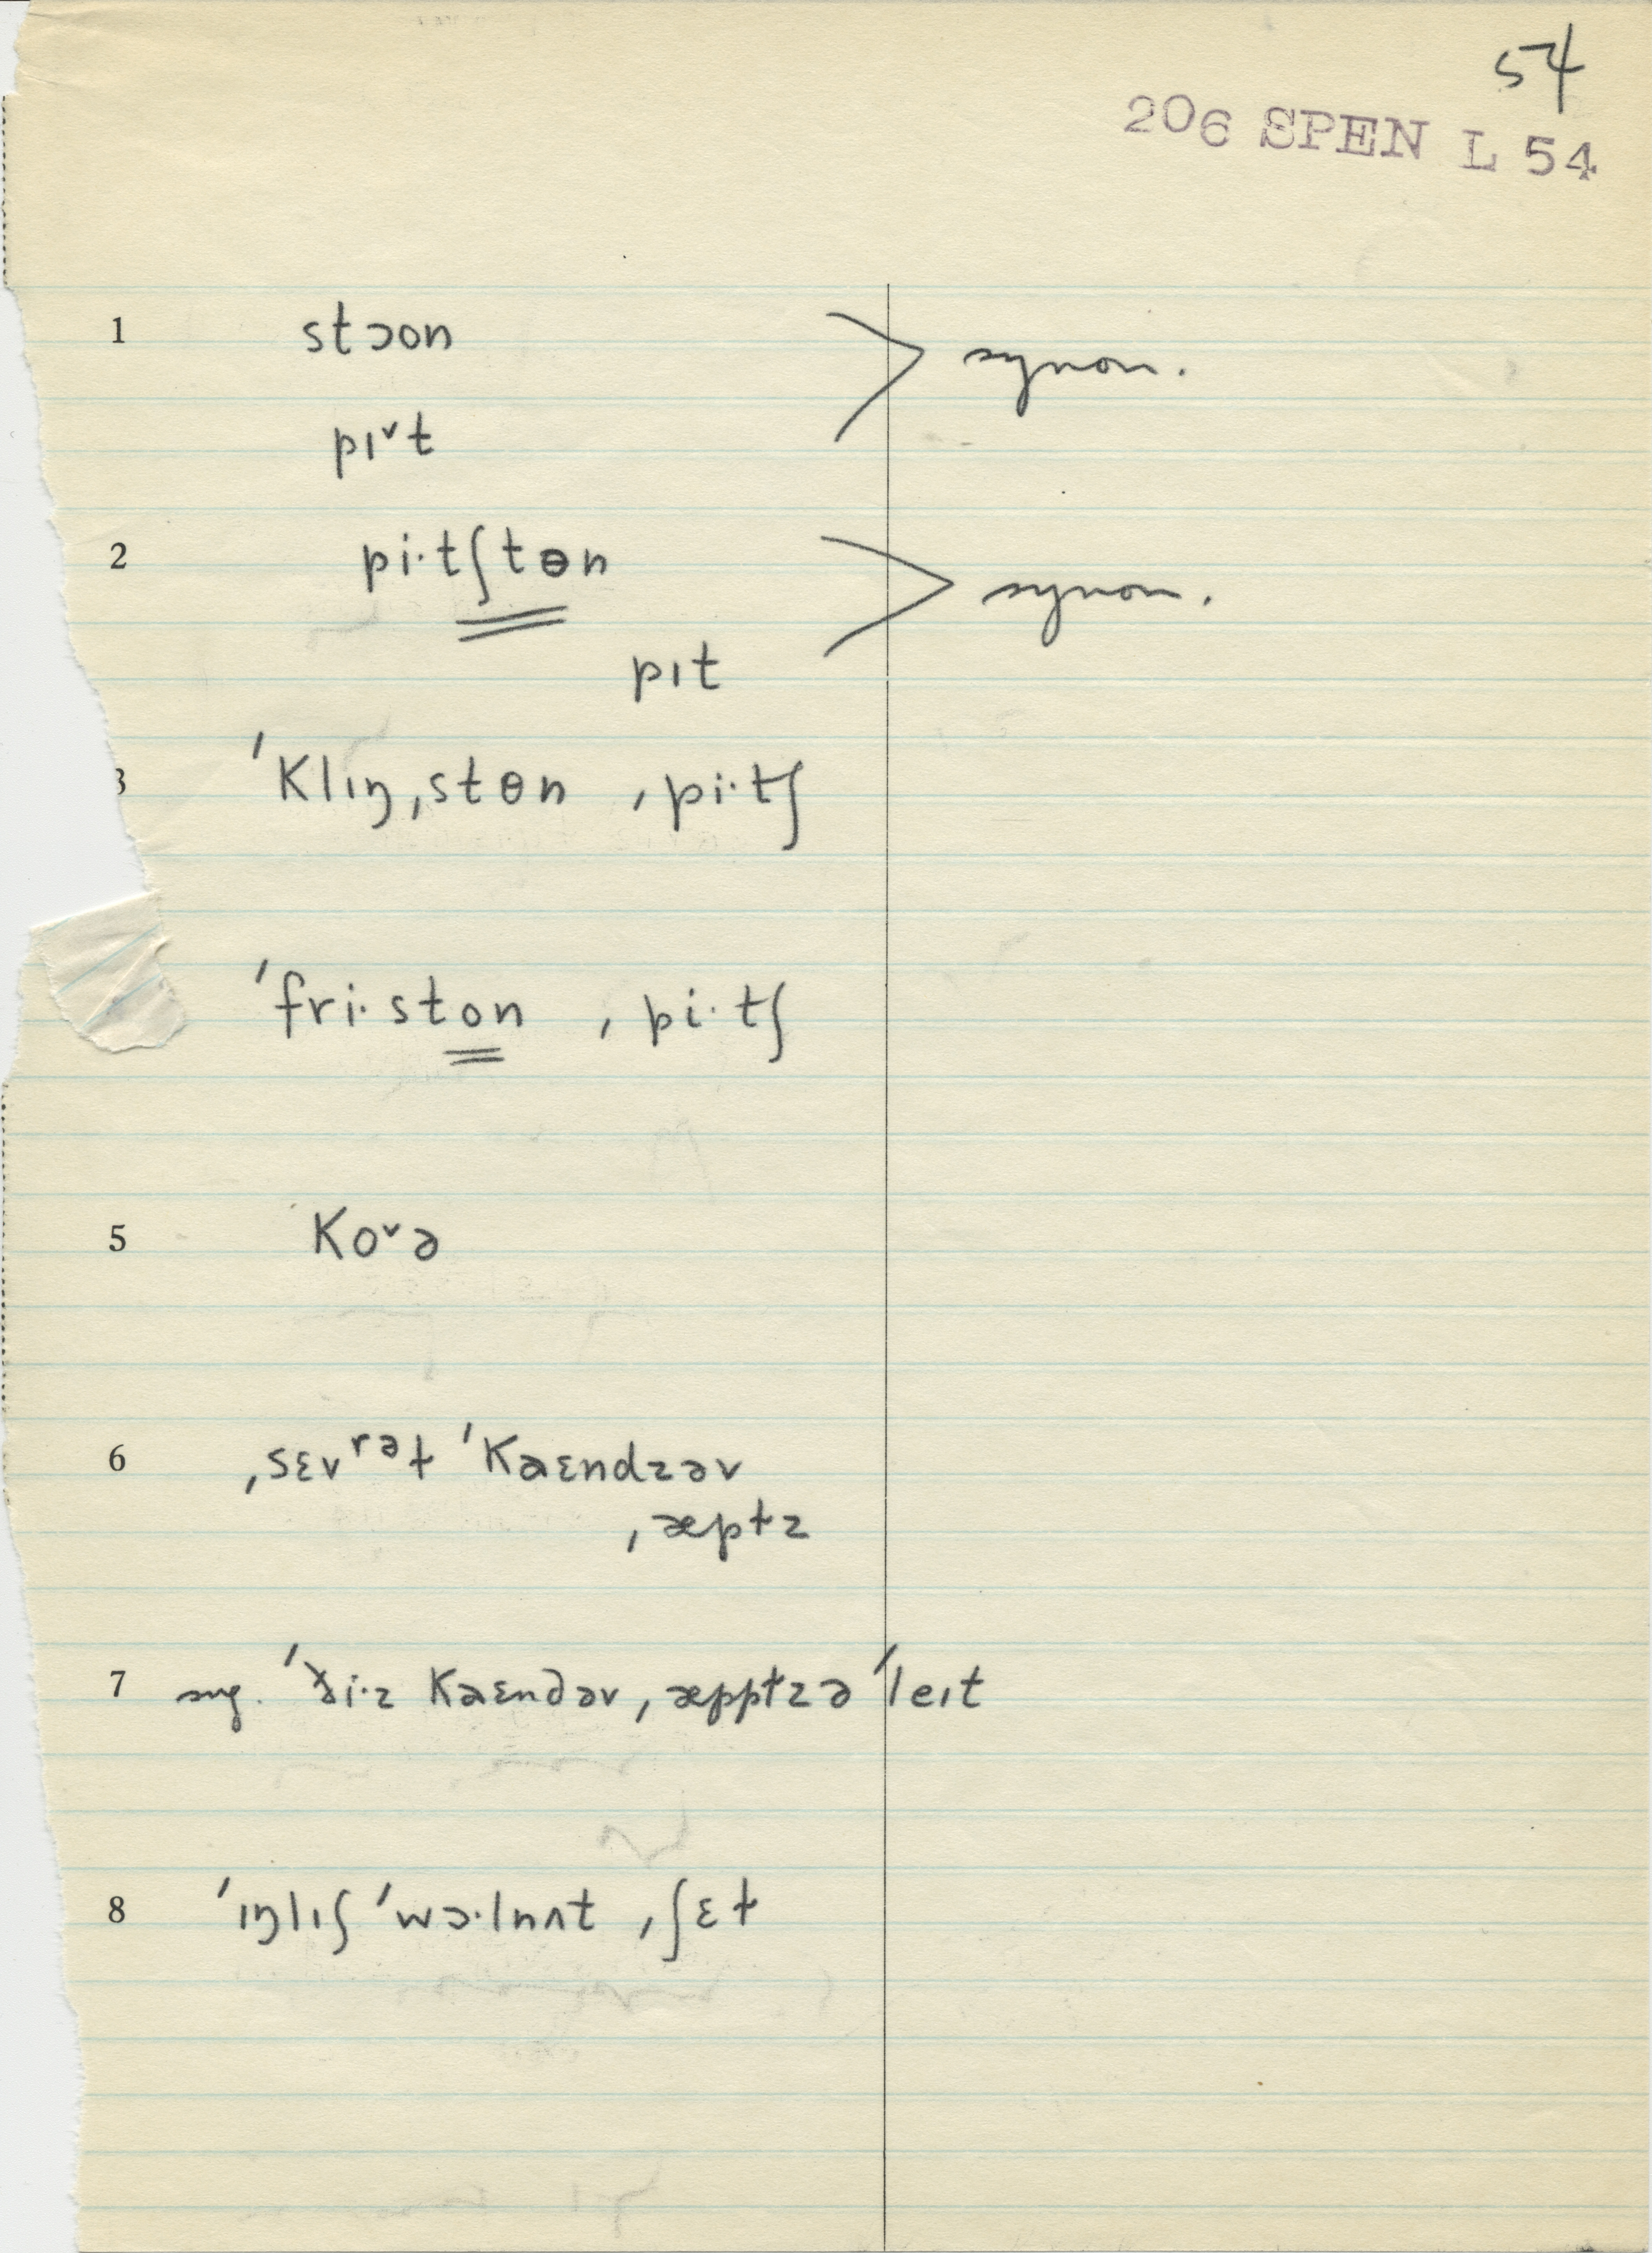 54
206 SPEN L 54
1 stɔon > synon.
pɪˇt
2 pi·tʃtɵn > synon.
pɪt
3 ˈklɪŋˌstɵn ˌpi·tʃ
ˈfri·ston ˌpi·tʃ
5 koˇə
6 ˌsɛvrəɫ ˈkaɛndzəv
ˌæpɫz
7 sing. ˈði·z kaɛndəv ˌæppɫz ə ˈleɪt
8 ˈɪŋlɪʃ ˈwɔ·lnʌt ˌʃɛɫ